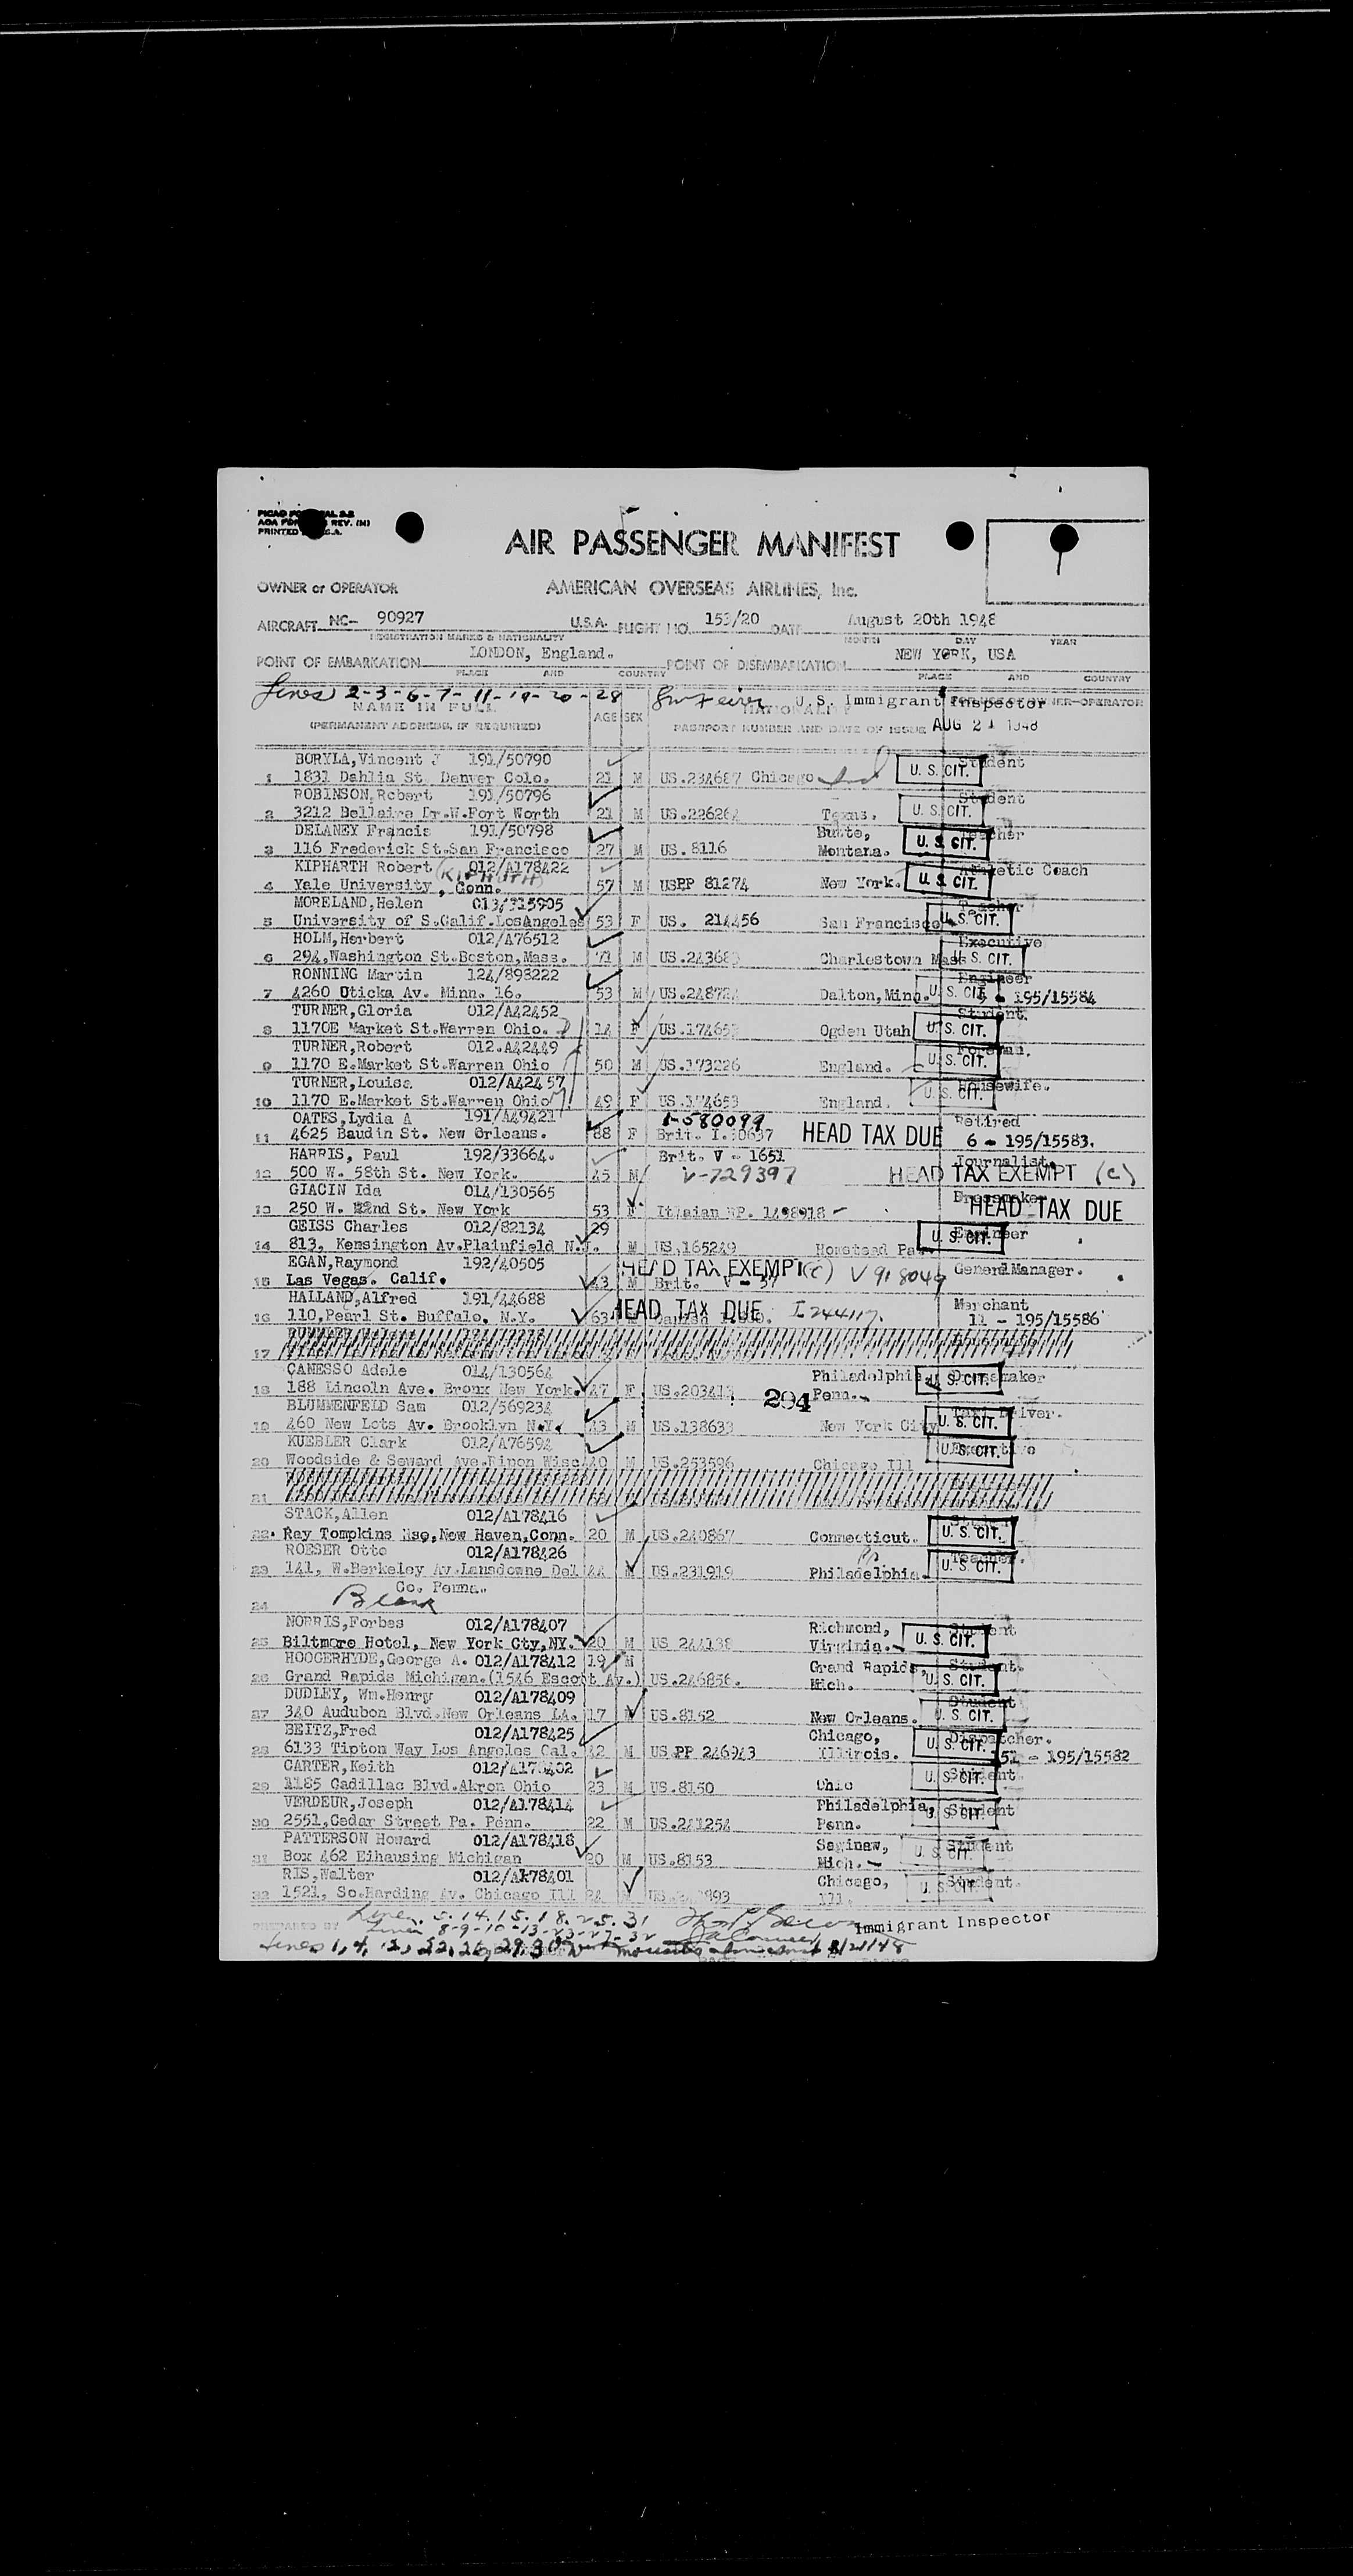 AIR PASSENGER MANIFEST
OWNER or OPERATOR AMERICAN OVERSEAS AIRLINES, Inc.
AIRCRAFT NC- 90927 U.S.A. FLIGHT NO. 153/20 DATE August 20th 1948
REGISTRATION MARKS & NATIONALITY MONTH DAY YEAR
POINT OF EMBARKATION LONDON, England. POINT OF DISEMBARKATION NEW YORK, USA
PLACE AND COUNTRY PLACE AND COUNTRY
Lines 2-3-6-7-11-19-20-28 U.S. Immigrant Inspector
NAME IN FULL AGE SEX NATIONALITY
(PERMANENT ADDRESS, IF REQUIRED) PASSPORT NUMBER AND DATE OF ISSUE AUG 21 1948
BORYLA, Vincent J 191/50790 Student
1 1831 Dahlia St. Denver Colo. 21 M US.234687 Chicago U. S. CIT.
ROBINSON, Robert 191/50796 Student
2 3212 Bellaire Dr.W.Fort Worth 21 M US.226264 Texas. U. S. CIT.
DELANEY Francis 191/50798 Butte, Teacher
3 116 Frederick St.San Francisco 27 M US.8116 Montana. U. S. CIT.
KIPHARTH Robert 012/A178422 Athletic Coach
(KIPHUTH)
4 Yale University, Conn. 57 M USPP 81274 New York. U. S. CIT.
MORELAND, Helen 013/315905 Teacher
5 University of S.Calif.LosAngeles 53 F US. 214456 San Francisco U. S. CIT.
HOLM, Herbert 012/A76512 Executive
6 294, Washington St.Boston, Mass. 71 M US.24368 Charlestown Mass U. S. CIT.
RONNING Martin 124/898222 Engineer
7 4260 Uticka Av. Minn. 16. 53 M US.24872 Dalton, Minn. U. S. CIT. - 195/15584
TURNER, Gloria 012/A42452 Student.
8 1170E Market St.Warren Ohio. 14 F US.17465 Ogden Utah U. S. CIT.
TURNER, Robert 012.A42449 Foreman.
9 1170 E.Market St.Warren Ohio 50 M US.173226 England. U. S. CIT.
TURNER, Louisa 012/A42457 Housewife.
10 1170 E.Market St.Warren Ohio 49 F US.174653 England. U. S. CIT.
OATES, Lydia A 191/A49421 I-580099 Retired
11 4625 Baudin St. New Orleans. 88 F Brit. I.30637 HEAD TAX DUE 6 - 195/15583.
HARRIS, Paul 192/33664. Brit. V - 1651 Journalist.
12 500 W. 58th St. New York. 45 M V-729397 HEAD TAX EXEMPT (C)
GIACIN Ida 014/130565 Dressmaker
13 250 W. 22nd St. New York 53 F Italian PP. 1498918 - HEAD TAX DUE
GEISS Charles 012/82134 29 Engineer
14 813, Kensington Av.Plainfield N.J. M US.165249 Homestead Pa. U. S. CIT.
EGAN, Raymond 192/40505 HEAD TAX EXEMPT (C) V 918049 General Manager.
15 Las Vegas. Calif. 43 M Brit. V - 57
HALLAND, Alfred 191/44688 Merchant
16 110, Pearl St. Buffalo. N.Y. 63 HEAD TAX DUE I244117. 11 - 195/15586
17
CANESSO Adele 014/130564 Philadelphia Dressmaker
18 188 Lincoln Ave. Bronx New York. 47 F US.203413 294 Penn. U. S. CIT.
BLUMMENFELD Sam 012/569234 Taxi Driver.
19 460 New Lots Av. Brooklyn N.Y. 43 M US.138633 New York City U. S. CIT.
KUEBLER Clark 012/A76594 Executive
20 Woodside & Seward Ave.Ripon Wisc 40 M US.253596 Chicago Ill U. S. CIT.
21
STACK, Allen 012/A178416 Student
22. Ray Tompkins Hse, New Haven, Conn. 20 M US.240867 Connecticut. U. S. CIT.
ROESER Otto 012/A178426 Teacher.
23 141, W.Berkeley Av.Lansdowne Del 44 M US.231919 Philadelphia. U. S. CIT.
Co. Penna.
24 Blank
NORRIS, Forbes 012/A178407 Richmond, Student
25 Biltmore Hotel, New York Cty, NY. 20 M US 244138 Virginia. U. S. CIT.
HOOGERHYDE, George A. 012/A178412 19 M Grand Rapids, Student.
26 Grand Rapids Michigan.(1546 Escott Av.) US.246856. Mich. U. S. CIT.
DUDLEY, Wm.Henry 012/A178409 Student
27 340 Audubon Blvd.New Orleans LA. 17 M US.8152 New Orleans. U. S. CIT.
BEITZ, Fred 012/A178425 Chicago, Dispatcher.
28 6133 Tipton Way Los Angeles Cal. 42 M US.PP 246943 Illinois. U. S. CIT. 51 - 195/15582
CARTER, Keith 012/A178402 Student.
29 1185 Cadillac Blvd.Akron Ohio 23 M US.8150 Ohio U. S. CIT.
VERDEUR, Joseph 012/A178414 Philadelphia, Student
30 2551, Cedar Street Pa. Penn. 22 M US.241254 Penn. U. S. CIT.
PATTERSON Howard 012/A178418 Saginaw, Student
31 Box 462 Eihausing Michigan 20 M US.8153 Mich. U. S. CIT.
RIS, Walter 012/A178401 Chicago, Student.
32 1521, So.Harding Av. Chicago Ill 24 Ill. U. S. CIT.
Lines. 5. 14. 15. 18. 25. 31
PREPARED BY Lines 8-9-10-13-23-27-32 Immigrant Inspector
Lines 1, 4, 12, 22, 26, 29, 30 8/21/48